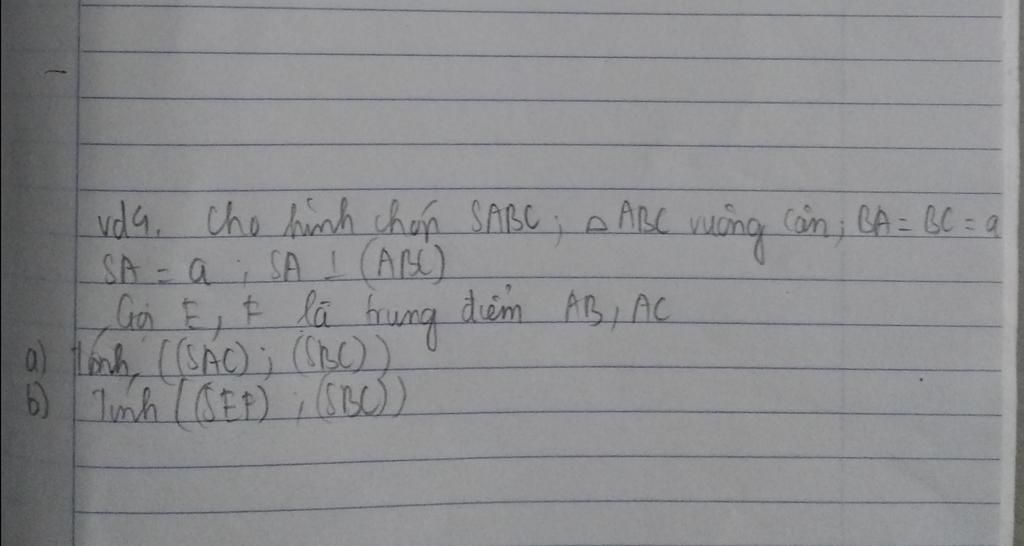 vd4. Cho hình chóp SABC; △ ABC vuông cân; BA = BC = a
SA = a ; SA ⊥ (ABC)
Gọi E, F là trung điểm AB, AC
a) Tính ((SAC); (SBC))
b) Tính ((SEF); (SBC))